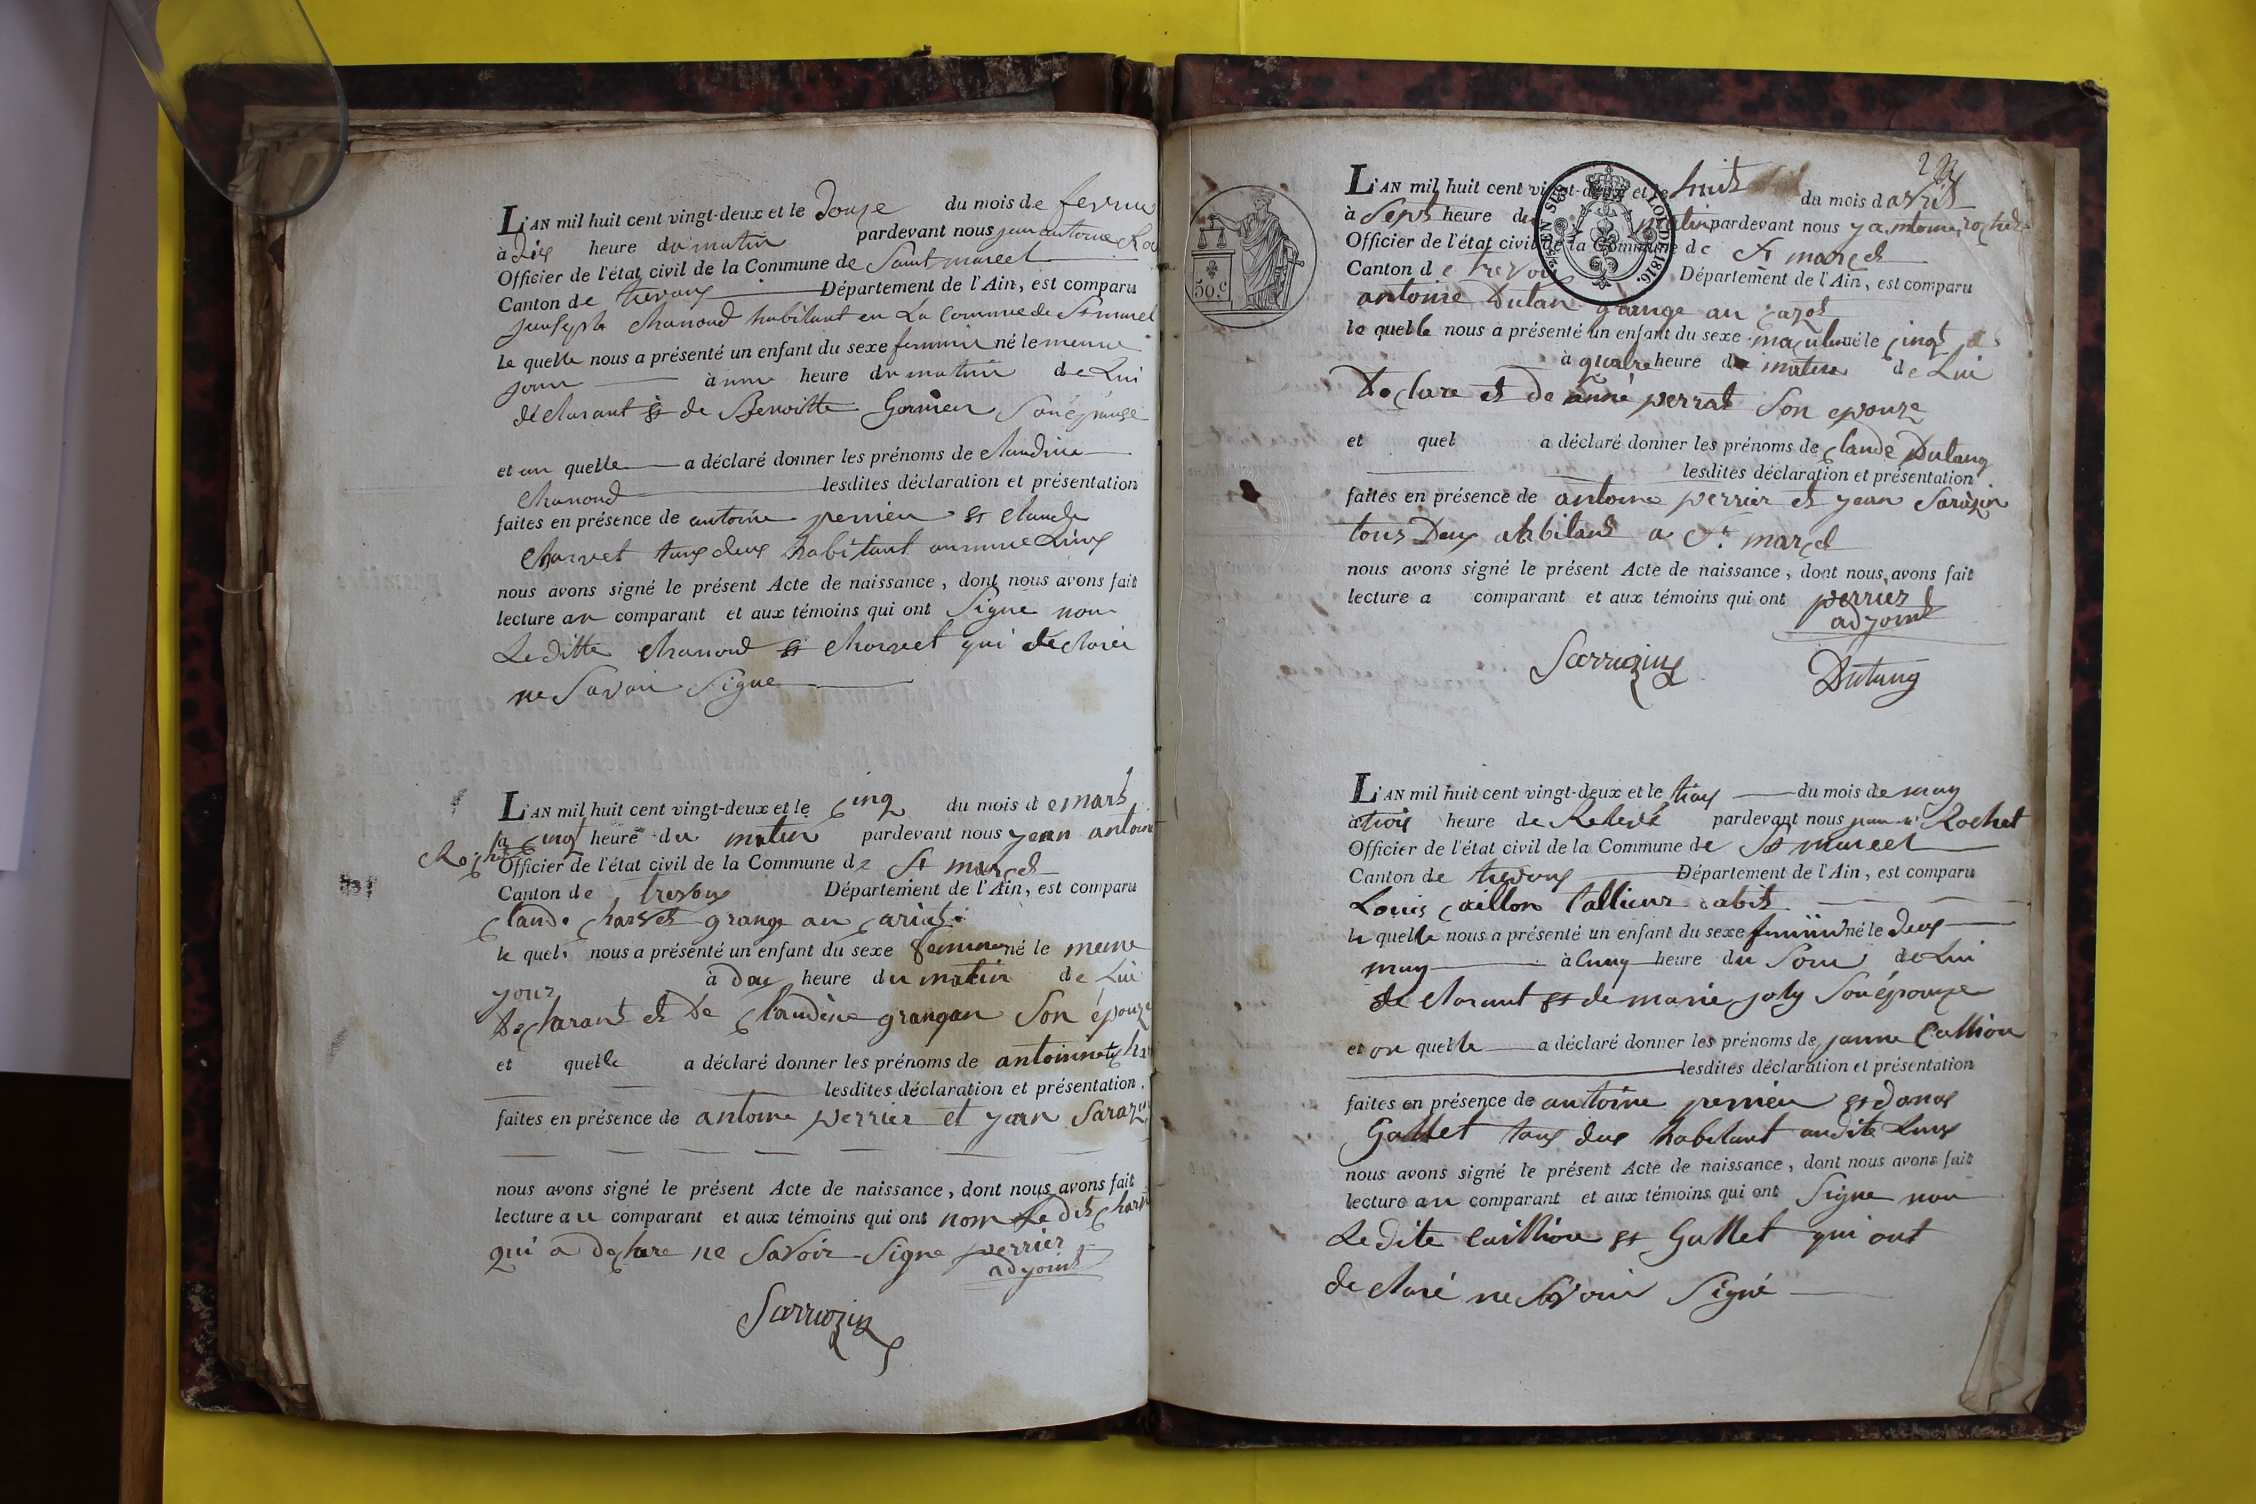 L'AN mil huit cent vingt-deux et le douze du mois de fevrie
à dix heure du matin pardevant nous jean antoine Ro
Officier de l'état civil de la Commune de Saint marcel
Canton de trevoux Département de l'Ain, est comparu
jouseph chanoud habitant en La Commune de St marcel
le quelle nous a présenté un enfant du sexe feminin né le meme
jour à une heure du matin de Lui
déclarant et de Benoitte Garnier Son épouse
et au quelle a déclaré donner les prénoms de claudine
chanoud lesdites déclaration et présentation
faites en présence de antoine perrier et claude
charvet tous deux habitant au meme Lieux
nous avons signé le présent Acte de naissance, dont nous avons fait
lecture au comparant et aux témoins qui ont Signe non
Le ditte chanoud et charvet qui declaré
ne Savoir Signe
L'AN mil huit cent vingt-deux et le cinq du mois de mars
à cinq heure du matin pardevant nous yean antoine
Rochet Officier de l'état civil de la Commune de St marcel
Canton de trevoux Département de l'Ain, est comparu
Claude charvet grange au
le quel nous a présenté un enfant du sexe feminin né le meme
your à heure du matin de Lui
declarant et De Claudine grangan Son épouze
et quelle a déclaré donner les prénoms de antoinnet char
lesdites déclaration et présentation
faites en présence de antoine perrier et yean Sarazin
nous avons signé le présent Acte de naissance, dont nous avons fait
lecture au comparant et aux témoins qui ont nom Le dit char
qui a declare ne Savoir Signe perrier
adyoint
Sarrazin
22
L'AN mil huit cent vingt-deux et le huit du mois d avril
à Sept heure du matin pardevant nous y antoine rochet
Officier de l'état civil de la Commune de St marcel
Canton de trevoux Département de l'Ain, est comparu
TIMBRE EN SUS LOI DE 1816.
50.c
antoine Dutan grange au
le quelle nous a présenté un enfant du sexe masculin né le cinq
à quatre heure du matin de Lui
declare et de anné perrat Son epouze
et quel a déclaré donner les prénoms de claude Dutang
lesdites déclaration et présentation
faites en présence de antoine perrier et yean Sarazin
tous Deux ahbitant a St marcel
nous avons signé le présent Acte de naissance, dont nous avons fait
lecture a comparant et aux témoins qui ont perrier
adyoint
Sarrazin Dutang
L'AN mil huit cent vingt-deux et le trois du mois de may
à trois heure de Relevé pardevant nous jean Rochet
Officier de l'état civil de la Commune de St marcel
Canton de trevoux Département de l'Ain, est comparu
Louis caillon tallieur dabit
le quelle nous a présenté un enfant du sexe feminin né le deux
may à heure du Soir de Lui
declarant et de marie joly Son épouze
et on quelle a déclaré donner les prénoms de janne Callion
lesdites déclaration et présentation
faites en présence de antoine perrier et
Gallet tous deux habitant au dite Lieux
nous avons signé le présent Acte de naissance, dont nous avons fait
lecture au comparant et aux témoins qui ont Signe non
Le dite caillion et Gallet qui ont
declaré ne Savoir Signé